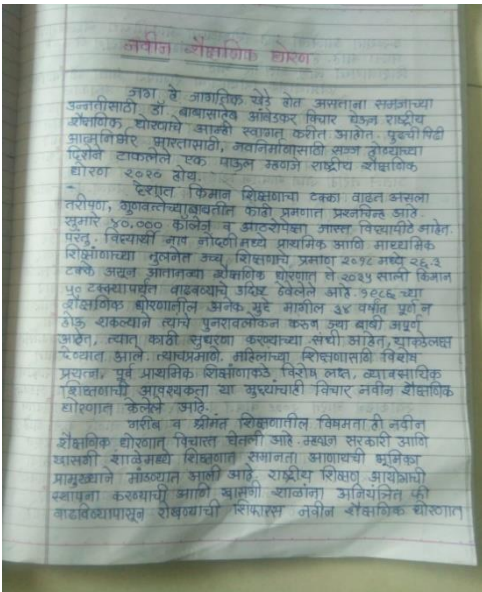 नवीन शैक्षणिक धोरण
जग हे जागतिक खेडे होत असताना समाजाच्या
उन्नतीसाठी, डॉ. बाबासाहेब आंबेडकर विचार घेऊन राष्ट्रीय
शैक्षणिक धोरणाचे आम्ही स्वागत करीत आहोत. पुढची पिढी
आत्मनिर्भर भारतासाठी, नवनिर्माणासाठी सज्ज होण्याच्या
दिशेने टाकलेले एक पाऊल म्हणजे राष्ट्रीय शैक्षणिक
धोरण २०२० होय.
देशात किमान शिक्षणाचा टक्का वाढत असला
तरीपण, गुणवत्तेच्याबाबतीत काही प्रमाणात प्रश्नचिन्ह आहे.
सुमारे ४०,००० कॉलेज व आठशेपेक्षा जास्त विद्यापीठे आहेत.
परंतु, विद्यार्थी नाव नोंदणीमध्ये प्राथमिक आणि माध्यमिक
शिक्षणाच्या तुलनेत उच्च शिक्षणाचे प्रमाण २०१८ मध्ये २६.३
टक्के असून आताच्या शैक्षणिक धोरणात ते २०३५ साली किमान
५० टक्क्यापर्यंत वाढवण्याचे उद्दिष्ट ठेवलेले आहे. १९८६ च्या
शैक्षणिक धोरणातील अनेक मुद्दे मागील ३४ वर्षात पूर्ण न
होऊ शकल्याने त्यांचे पुनरावलोकन करून ज्या बाबी अपूर्ण
आहेत, त्यात काही सुधारणा करण्याच्या संधी आहेत, त्याकडे लक्ष
देण्यात आले. त्याचप्रमाणे, महिलांच्या शिक्षणासाठी विशेष
प्रयत्न, पूर्व प्राथमिक शिक्षणाकडे विशेष लक्ष, व्यावसायिक
शिक्षणाची आवश्यकता या मुद्द्यांचाही विचार नवीन शैक्षणिक
धोरणात केलेले आहे.
गरीब व श्रीमंत शिक्षणातील विषमता ही नवीन
शैक्षणिक धोरणात विचारात घेतली आहे. म्हणून सरकारी आणि
खासगी शाळेमध्ये शिक्षणात समानता आणायची भूमिका
प्रामुख्याने मांडण्यात आली आहे. राष्ट्रीय शिक्षण आयोगाची
स्थापना करण्याची आणि खासगी शाळांना अनियंत्रित फी
वाढविण्यापासून रोखण्याची शिफारस नवीन शैक्षणिक धोरणात